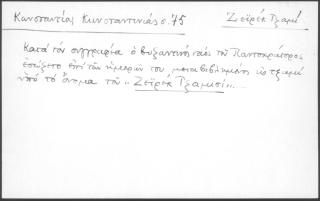 Κωνσταντίας Κωνσταντινιάς σ. 75 Ζεϊρέκ Τζαμί
Κατά τόν συγγραφέα ὁ βυζαντινός ναός τοῦ Παντοκράτορος
ἐσώζετο ἐπί τῶν ἡμερῶν του μεταβεβλημένος εἰς τζαμί
ὑπό τό ὄνομα τοῦ "Ζεϊρέκ Τζαμισί"...